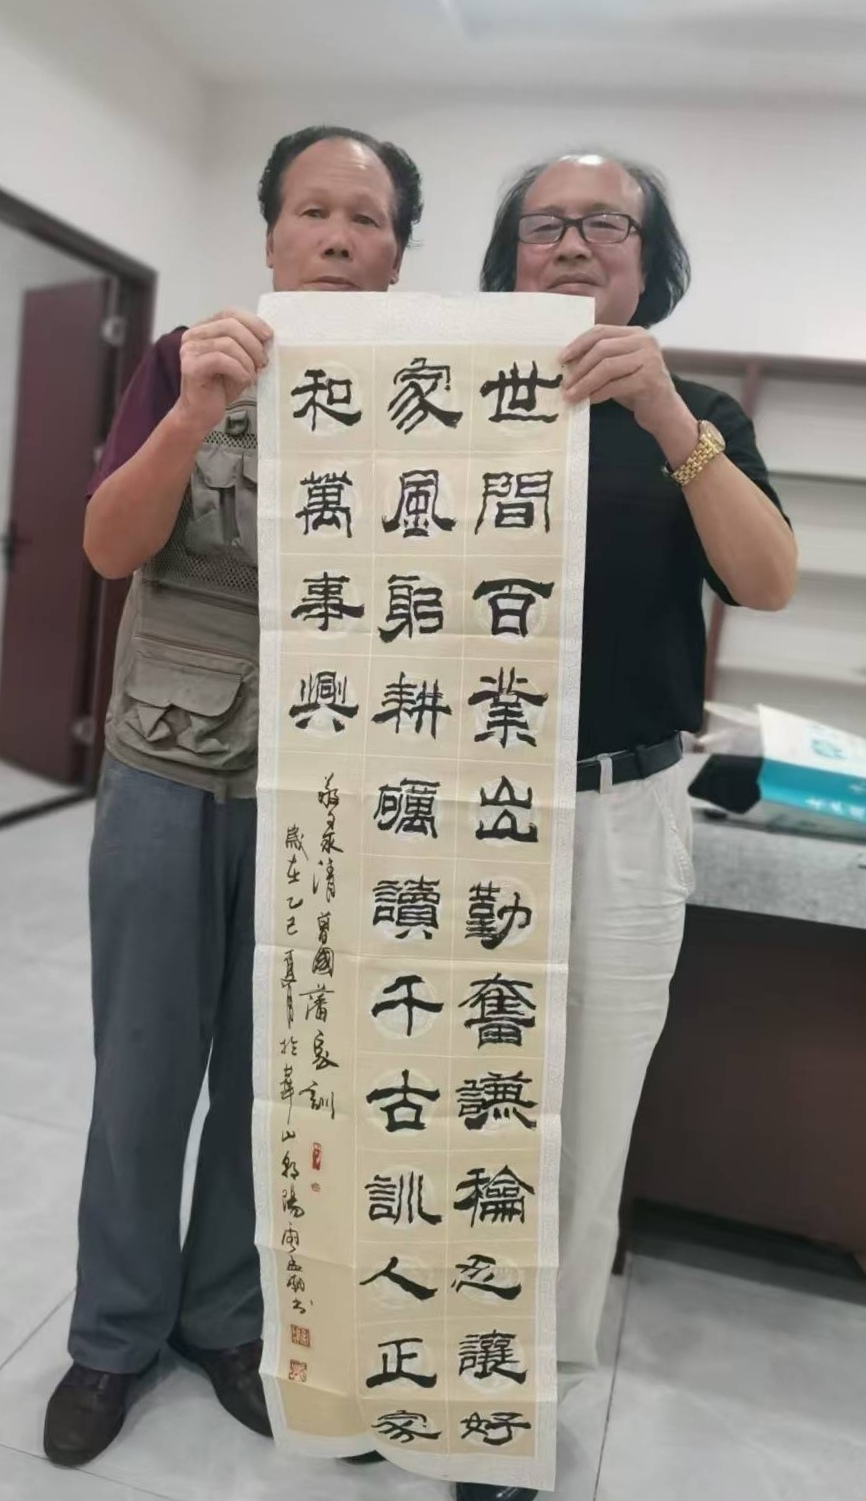 世間百業出勤奮謙龢忍讓好
家風躬耕礪讀千古訓人正家
和萬事興
敬录清曾國藩家訓
歲在乙巳夏月於華山朝陽